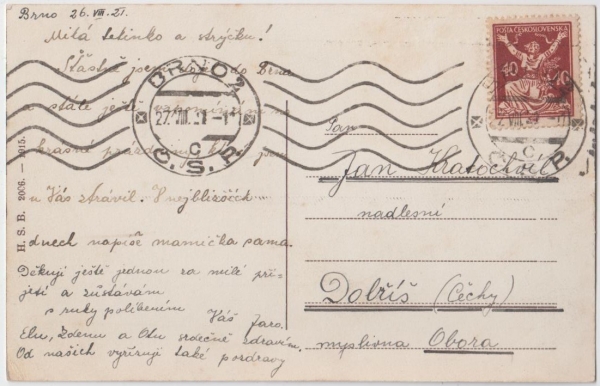 Brno 26. VIII. 21.
Milá tetinko a strýčku!
Šťastně jsem do Brna
a stále ještě vzpomínám
krásné
u Vás ztrávil. V nejbližších
dnech napíše mamička sama.
Děkuji ještě jednou za milé při-
jetí a zůstávám
s ruky políbením Váš Jaro.
Elu, Zdenu a Otu srdečně zdravím.
Od našich vyřizuji také pozdravy
H. S. B. 2006. — 1915.
BRNO 2
27. VIII. 21
C
Č. S. P.
POŠTA ČESKOSLOVENSKÁ
40 40
C
P.
Pan
Jan Kratochvíl
nadlesní
Dobříš (Čechy)
myslivna Obora.